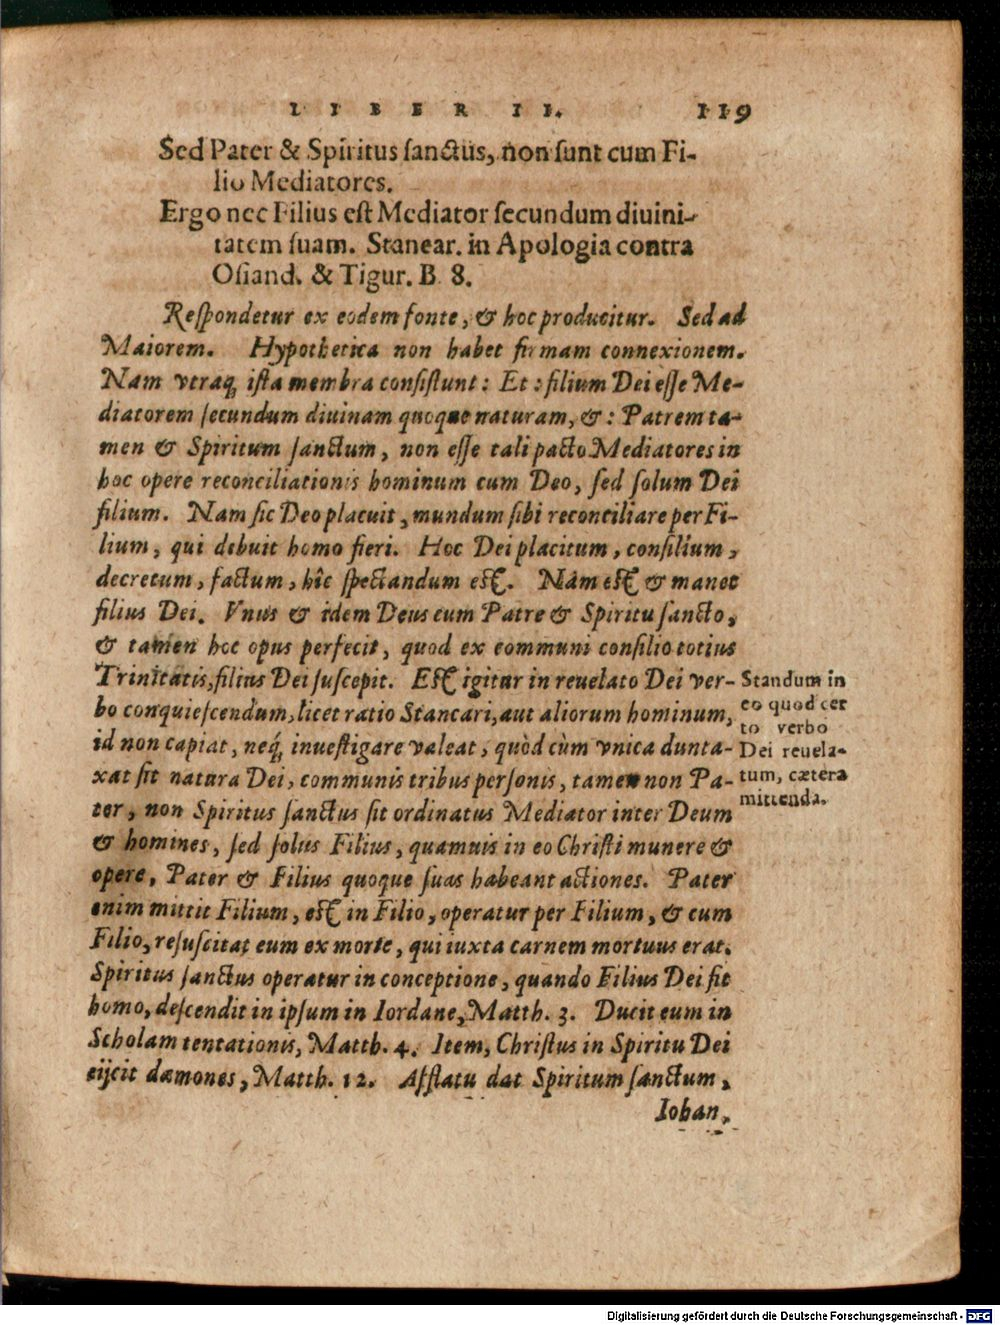 LIBER II. 119
Sed Pater & Spiritus ſanctus, non ſunt cum Fi-
lio Mediatores.
Ergo nec Filius eſt Mediator ſecundum diuini-
tatem ſuam. Stancar. in Apologia contra
Oſiand. & Tigur. B 8.
Reſpondetur ex eodem fonte, & hoc producitur. Sed ad
Maiorem. Hypothetica non habet firmam connexionem.
Nam vtraq; iſta membra conſiſtunt: Et: filium Dei eſſe Me-
diatorem ſecundum diuinam quoque naturam, &: Patrem ta-
men & Spiritum ſanctum, non eſſe tali pacto Mediatores in
hoc opere reconciliationis hominum cum Deo, ſed ſolum Dei
filium. Nam ſic Deo placuit, mundum ſibi reconciliare per Fi-
lium, qui debuit homo fieri. Hoc Dei placitum, conſilium,
decretum, factum, hîc ſpectandum eſt. Nam eſt & manet
filius Dei. Vnus & idem Deus cum Patre & Spiritu ſancto,
& tamen hoc opus perfecit, quod ex communi conſilio totius
Trinitatis, filius Dei ſuſcepit. Eſt igitur in reuelato Dei ver-
bo conquieſcendum, licet ratio Stancari, aut aliorum hominum,
id non capiat, neq́; inueſtigare valeat, quòd cùm vnica dunta-
xat ſit natura Dei, communis tribus perſonis, tamen non Pa-
ter, non Spiritus ſanctus ſit ordinatus Mediator inter Deum
& homines, ſed ſolus Filius, quamuis in eo Chriſti munere &
opere, Pater & Filius quoque ſuas habeant actiones. Pater
enim mittit Filium, eſt in Filio, operatur per Filium, & cum
Filio, reſuſcitat eum ex morte, qui iuxta carnem mortuus erat.
Spiritus ſanctus operatur in conceptione, quando Filius Dei fit
homo, deſcendit in ipſum in Iordane, Matth. 3. Ducit eum in
Scholam tentationis, Matth. 4. Item, Chriſtus in Spiritu Dei
eijcit dæmones, Matth. 12. Afflatu dat Spiritum ſanctum,
Iohan,
Standum in
eo quod cer
to verbo
Dei reuela-
tum, cætera
mittenda.
Digitalisierung gefördert durch die Deutsche Forschungsgemeinschaft - DFG